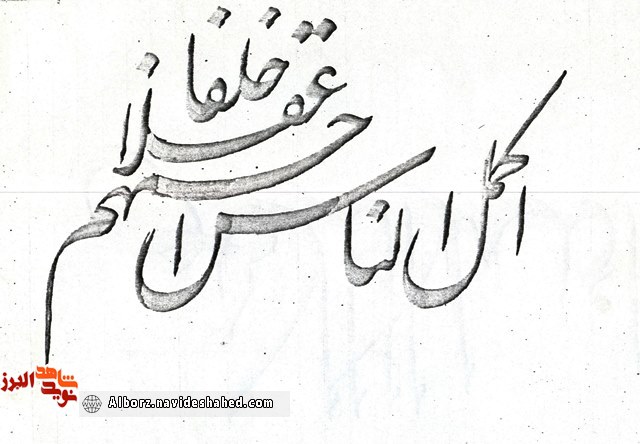 اکمل الناس عقلا احسنهم خلقا
نوید شاهد البرز
Alborz.navideshahed.com